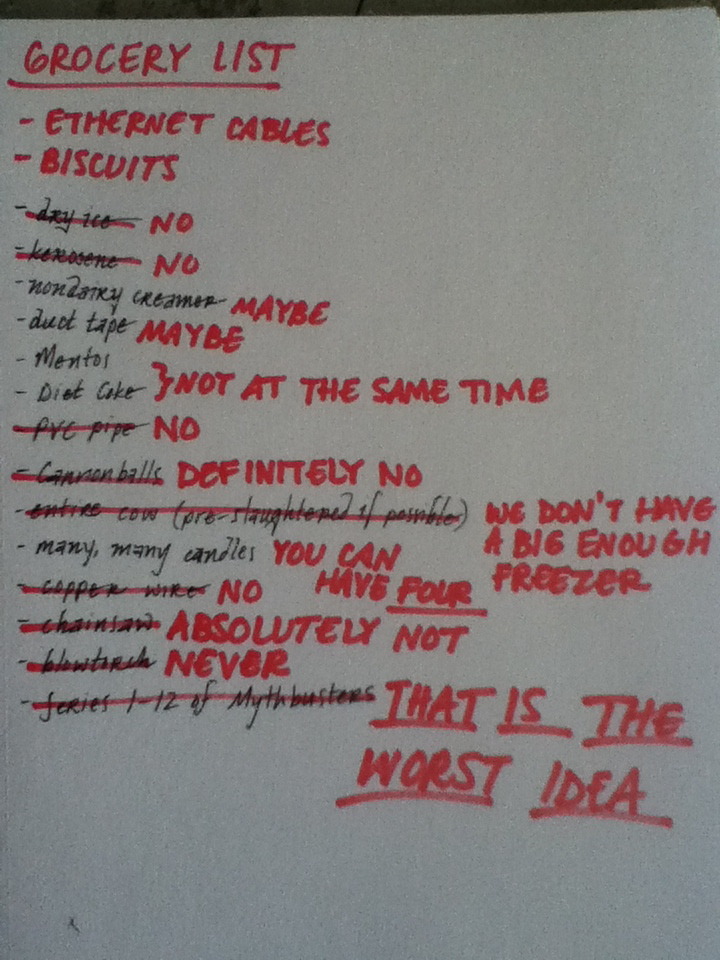 GROCERY LIST
- ETHERNET CABLES
- BISCUITS
- dry ice NO
- kerosene NO
- nondairy creamer MAYBE
- duct tape MAYBE
- Mentos
- Diet Coke } NOT AT THE SAME TIME
- PVC pipe NO
- Cannonballs DEFINITELY NO
- entire cow (pre-slaughtered if possible) WE DON'T HAVE
A BIG ENOUGH
FREEZER
- many, many candles YOU CAN
HAVE FOUR
- copper wire NO
- chainsaw ABSOLUTELY NOT
- blowtorch NEVER
- Series 1-12 of Mythbusters THAT IS THE
WORST IDEA